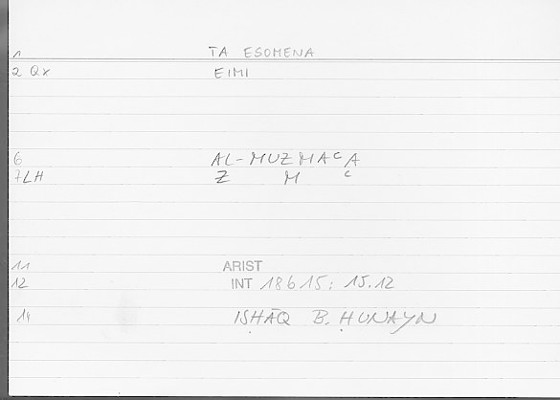 1 TA ESOMENA
2 Qx EIMI
6 AL-MUZMAᶜA
7LH Z M ᶜ
11 ARIST
12 INT 18b15; 15.12
14 ISḤĀQ B. ḤUNAYN